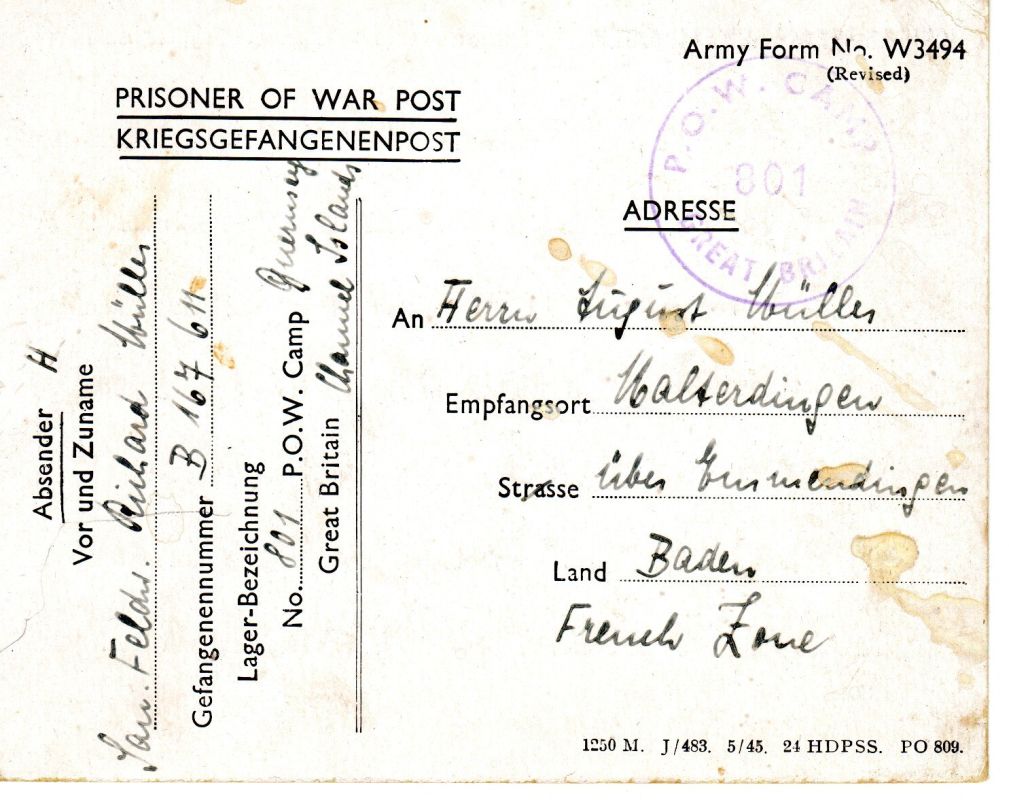 Army Form No. W3494
(Revised)
PRISONER OF WAR POST
KRIEGSGEFANGENENPOST
P.O.W. CAMP
801
GREAT BRITAIN
ADRESSE
An Herrn August Müller
Empfangsort Malterdingen
Strasse über Emmendingen
Land Baden
French Zone
Absender H
Vor und Zuname
San. Feldw. Richard Müller
Gefangenennummer B 167 611
Lager-Bezeichnung
No. 801 P.O.W. Camp Guernsey
Great Britain Channel Islands
1250 M. J/483. 5/45. 24 HDPSS. PO 809.